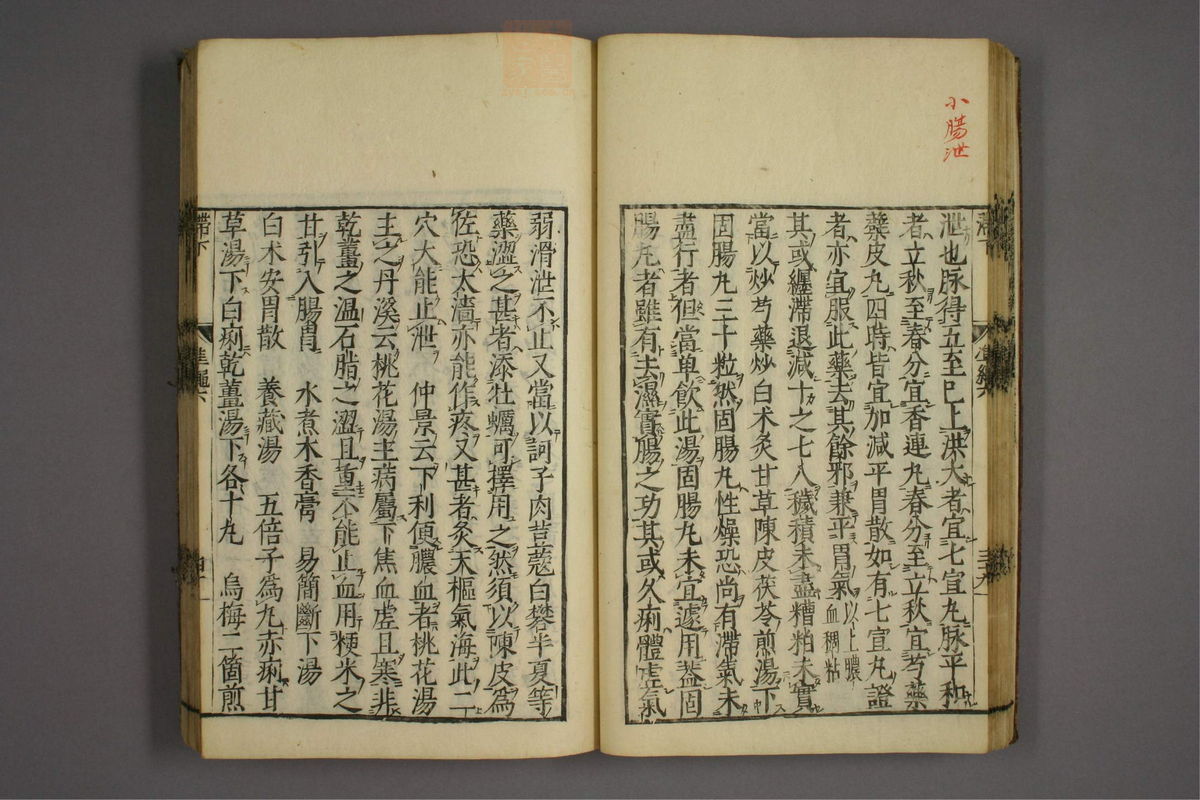 小腸泄
泄也脉得五至已上洪大者宜七宜丸脉平和
者立秋至春分宜香連丸春分至立秋宜芍藥
蘗皮丸四時皆宜加減平胃散如有七宜丸證
者亦宜服此藥去其餘邪兼平胃氣以上膿血稠粘
其或纏滯退減十之七八穢積未盡糟粕未實
當以炒芍藥炒白朮炙甘草陳皮茯苓煎湯下
固腸丸三十粒然固腸丸性燥恐尚有滯氣未
盡行者但當單飲此湯固腸丸未宜遽用蓋固
腸丸者雖有去濕實腸之功其或久痢體虛氣
弱滑泄不止又當以訶子肉荳蔻白礬半夏等
藥澀之甚者添牡蠣可擇用之然須以陳皮為
佐恐太濇亦能作疼又甚者灸天樞氣海此二
穴大能止泄 仲景云下利便膿血者桃花湯
主之丹溪云桃花湯主病屬下焦血虛且寒非
乾薑之温石脂之澀且重不能止血用粳米之
甘引入腸胃 水煮木香膏 易簡斷下湯
白朮安胃散 養藏湯 五倍子為丸赤痢甘
草湯下白痢乾薑湯下各十丸 烏梅二箇煎
滯下
準繩六